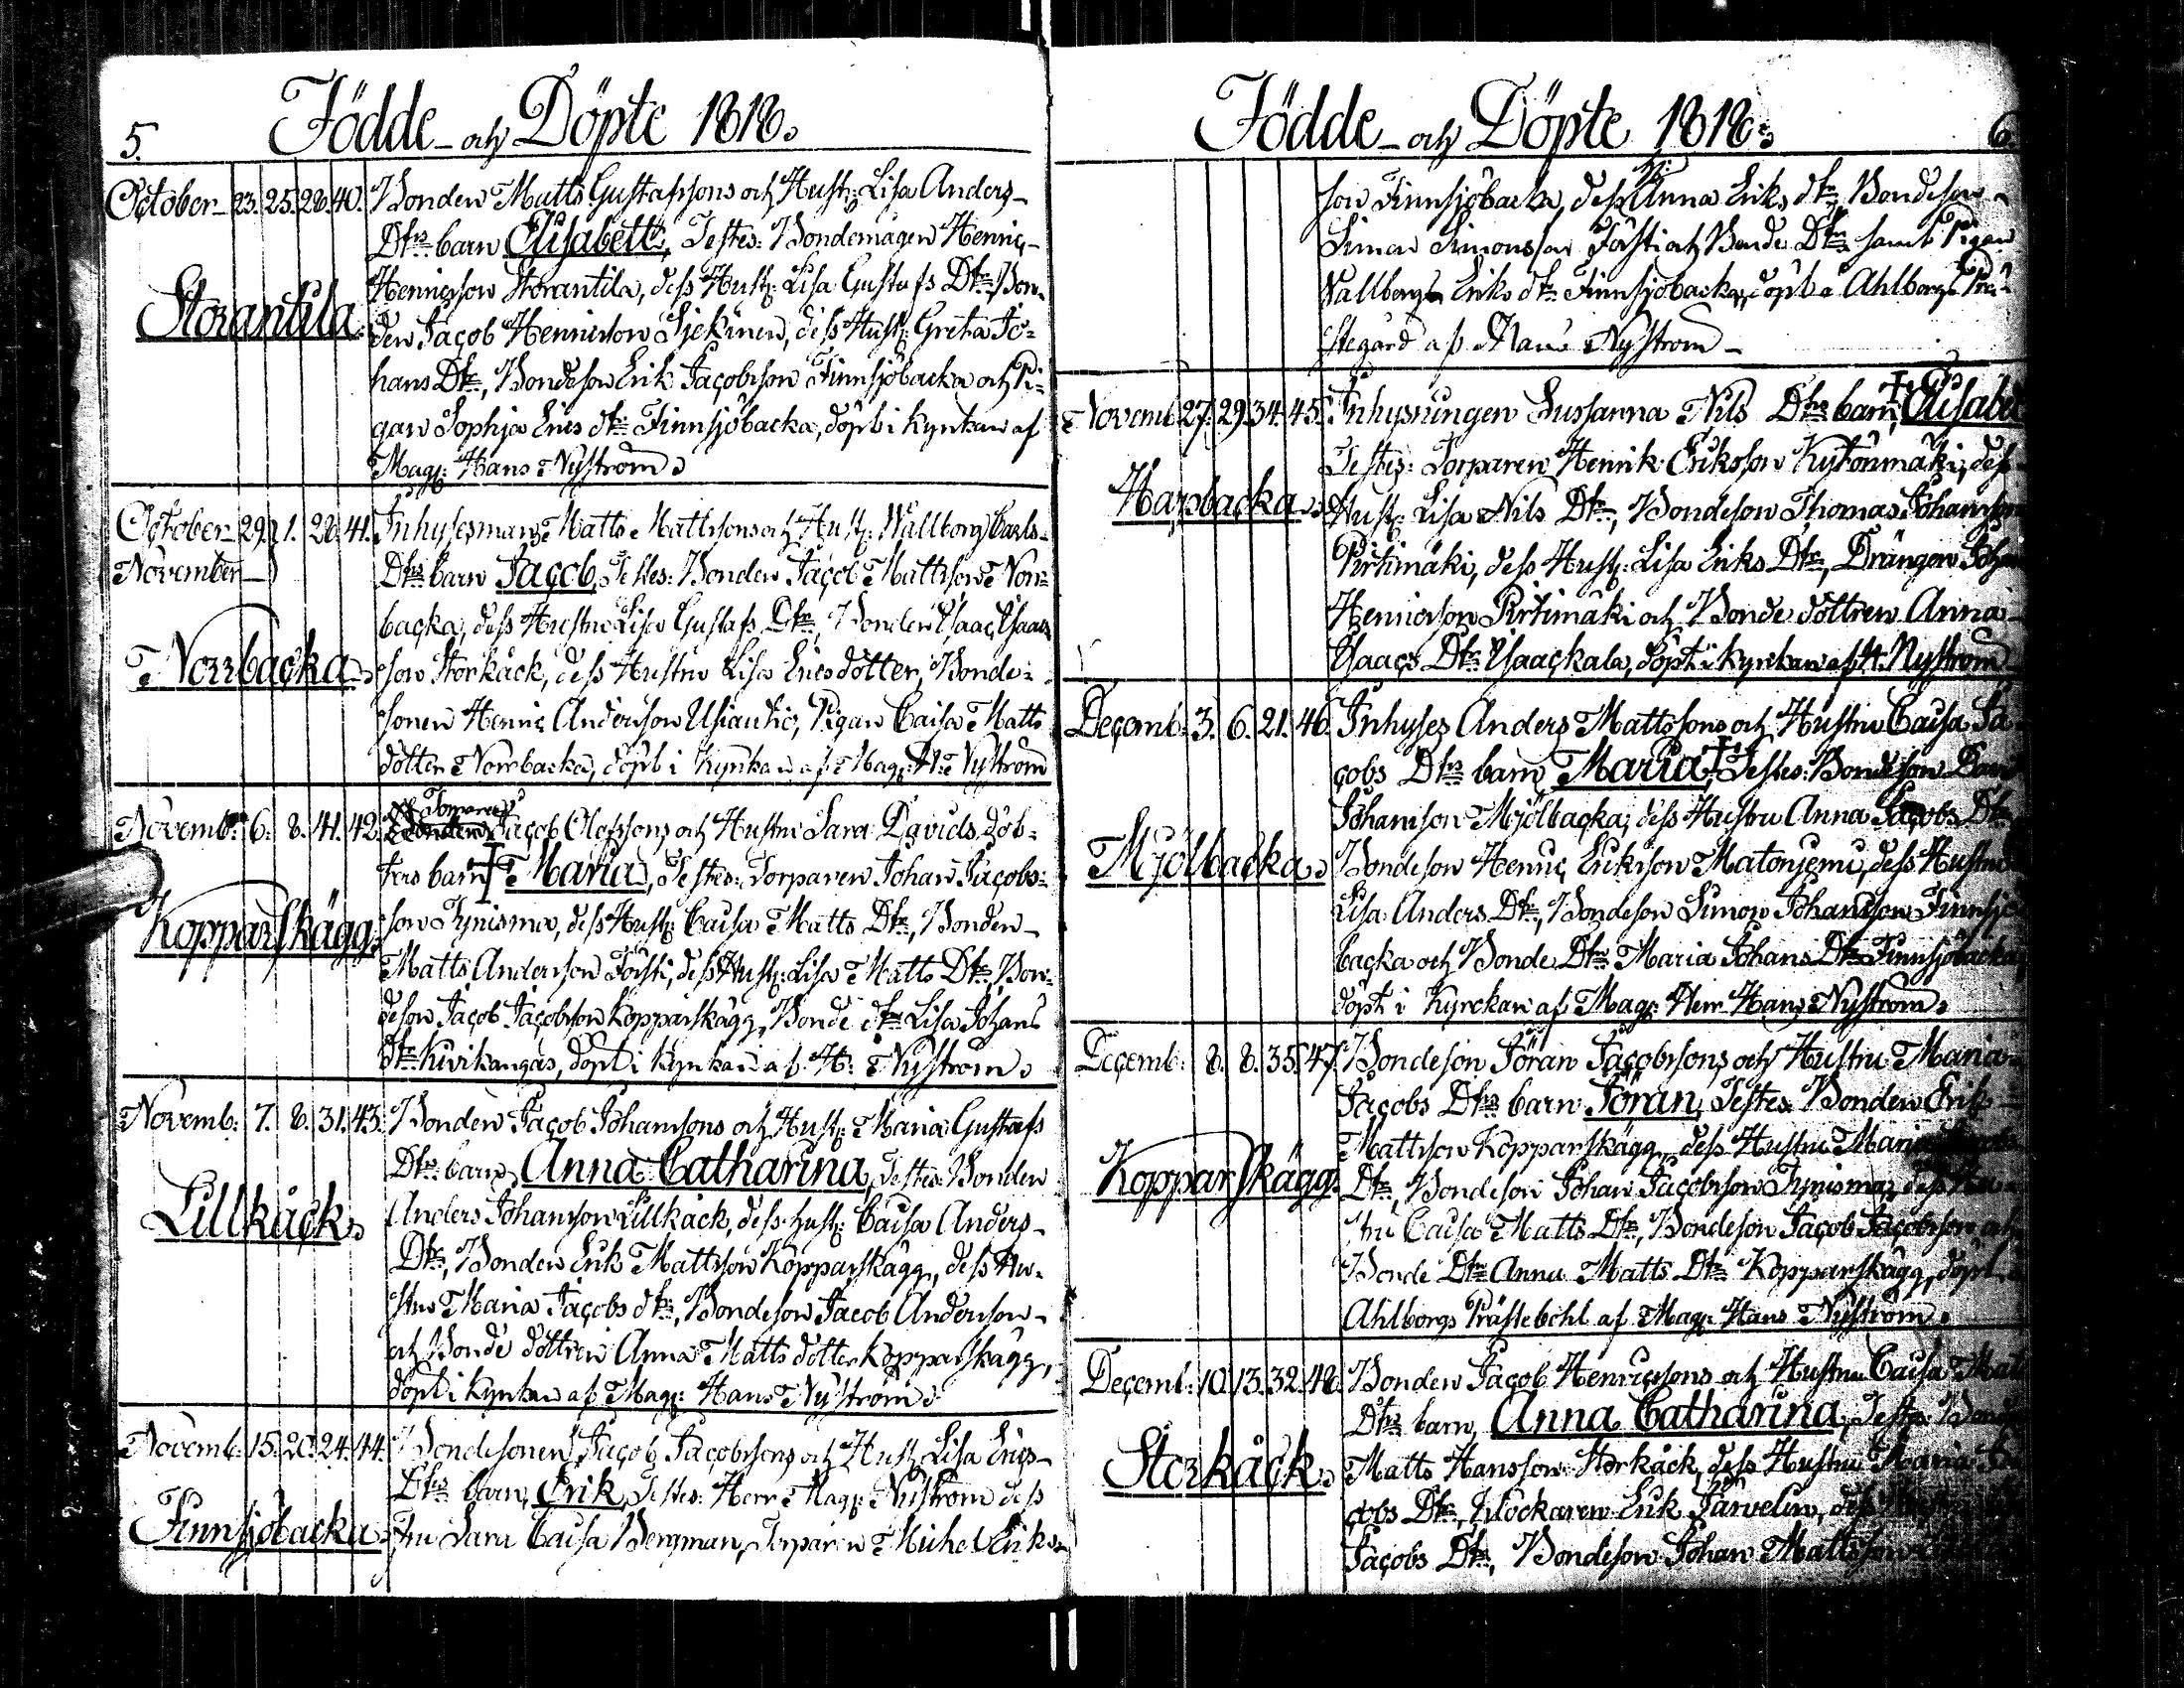 5.
Födde och Döpte 1818.
October 23. 25. 28. 40. Bonden Matts Gustafssons och Hust: Lisa Anders
Dtrs barn Elisabett, Testes: Bondemågen Henriç
Storantila
Henriçson Storantila, dess Hust: Lisa Gustafs Dtr, Bon-
den Jaçob Henricson Sjekinen, dess Hust: Greta Jo-
hans Dtr, Bondeson Erik Jaçobsson Finnsjöbacka och Pi-
gan Sophja Erics dtr Finnsjöbacka, döpt i Kyrckan af
Mag: Hans Nyström
October 29. 1. 28. 41. Inhysesman Matts Mattssons och Hust: Wallborg Carls
November
Dtrs barn Jaçob, Testes: Bonden Jaçob Mattsson Norr-
backa, dess Hustru Lisa Gustafs Dtr, Bonden Isaac Isaacs
Norrbacka
son Storkåck, dess Hustru Lisa Ericsdotter, Bonde-
sonen Henriç Andersson, Pigan Caisa Matts
dotter Norrbacka, döpt i Kyrckan af Mag: H: Nyström
Novemb: 6. 8. 41. 42. Torparen Jaçob Olofssons och Hustru Sara Davids dot-
ters barn Maria, Testes: Torparen Johan Jaçobs-
Kopparskägg
son Tynismaa, dess Hust: Caisa Matts Dtr, Bonden
Matts Andersson Försti, dess Hust: Lisa Matts Dtr, Bon-
deson Jaçob Jaçobsson Kopparskägg, Bonde dtr Lisa Johans
dtr Kivikangas, döpt i Kyrckan af H: Nyström
Novemb: 7. 8. 31. 43. Bonden Jaçob Johanssons och Hust: Maria Gustafs
Dtrs barn, Anna Catharina, Testes: Bonden
Lillkåck
Anders Johansson Lillkåck, dess hust: Caisa Anders
Dtr, Bonden Erik Mattsson Kopparskägg, dess Hu-
stru Maria Jaçobs dtr, Bondeson Jacob Andersson
och Bonde dottren Anna Matts dotter Kopparskägg,
döpt i Kyrckan af Mag: Hans Nyström
Novemb: 15. 20. 24. 44. Bondesonen Jaçob Jaçobssons och Hust: Lisa Erics
Dtrs barn, Erik, Testes: Herr Mag: Nyström dess
Finnsjöbacka
Fru Sara Caisa Bergman, Torparen Michel Eriks
6.
Födde och Döpte 1818.
son Finnsjöbacka, dess H: Anna Eriks dtr, Bondeson
Simon Simonsson Försti och Bonde Dtr samt Pigan
Vallborg Eriks dtr Finnsjöbacka, döpt å Ahlborgs Prä-
stegård af Hans Nyström
Novemb 27. 29. 34. 45. Inhysningen Susanna Nils Dtrs barn, Elisabet
Testes: Torparen Henrik Eriksson Kytönmäki, dess
Harsbacka
Hust: Lisa Nils Dtr, Bondeson Thomas Johansson
Pirtimäki, dess Hust: Lisa Eriks Dtr, Drängen Johan
Henricsson Pirtimäki och Bonde dottren Anna
Isaaçs Dtr Isaaçkala, döpt i Kyrckan af H. Nyström
Deçemb: 3. 6. 21. 46. Inhyses Anders Mattssons och Hustru Caisa Ja-
çobs Dtrs barn, Maria, Testes: Bondeson
Johansson Mjölbacka, dess Hustru Anna Jaçobs Dtr
Mjölbacka
Bondeson Henriç Eriksson Matonjemi, dess Hustru
Lisa Anders Dtr, Bondeson Simon Johansson Finnsjö
backa och Bonde Dtr Maria Johans Dtr Finnsjöbacka
döpt i Kyrckan af Mag: Herr Hans Nyström
Deçemb: 8. 8. 35. 47. Bondeson Jöran Jaçobssons och Hustru Maria
Jaçobs Dtrs barn Jöran, Testes: Bonden Erik
Mattsson Kopparskägg, dess Hustru Maria
Kopparskägg
Dtr, Bondeson Johan Jaçobsson Tynismaa, dess Hu-
stru Caisa Matts Dtr, Bondeson Jaçob Jaçobsson och
Bonde Dtr Anna Matts Dtr Kopparskägg, döpt
Ahlborgs Prästebohl af Mag: Hans Nyström
Deçemb: 10. 13. 32. 48. Bonden Jaçob Henriçssons och Hustru Caisa Mat
Dtrs barn, Anna Catharina, Testes: Bond
Storkåck
Matts Hansson Storkåck, dess Hustru Maria Ja
çobs Dtr, Klockaren Erik Järvelin, dess
Jaçobs Dtr, Bondeson Johan Mattsson